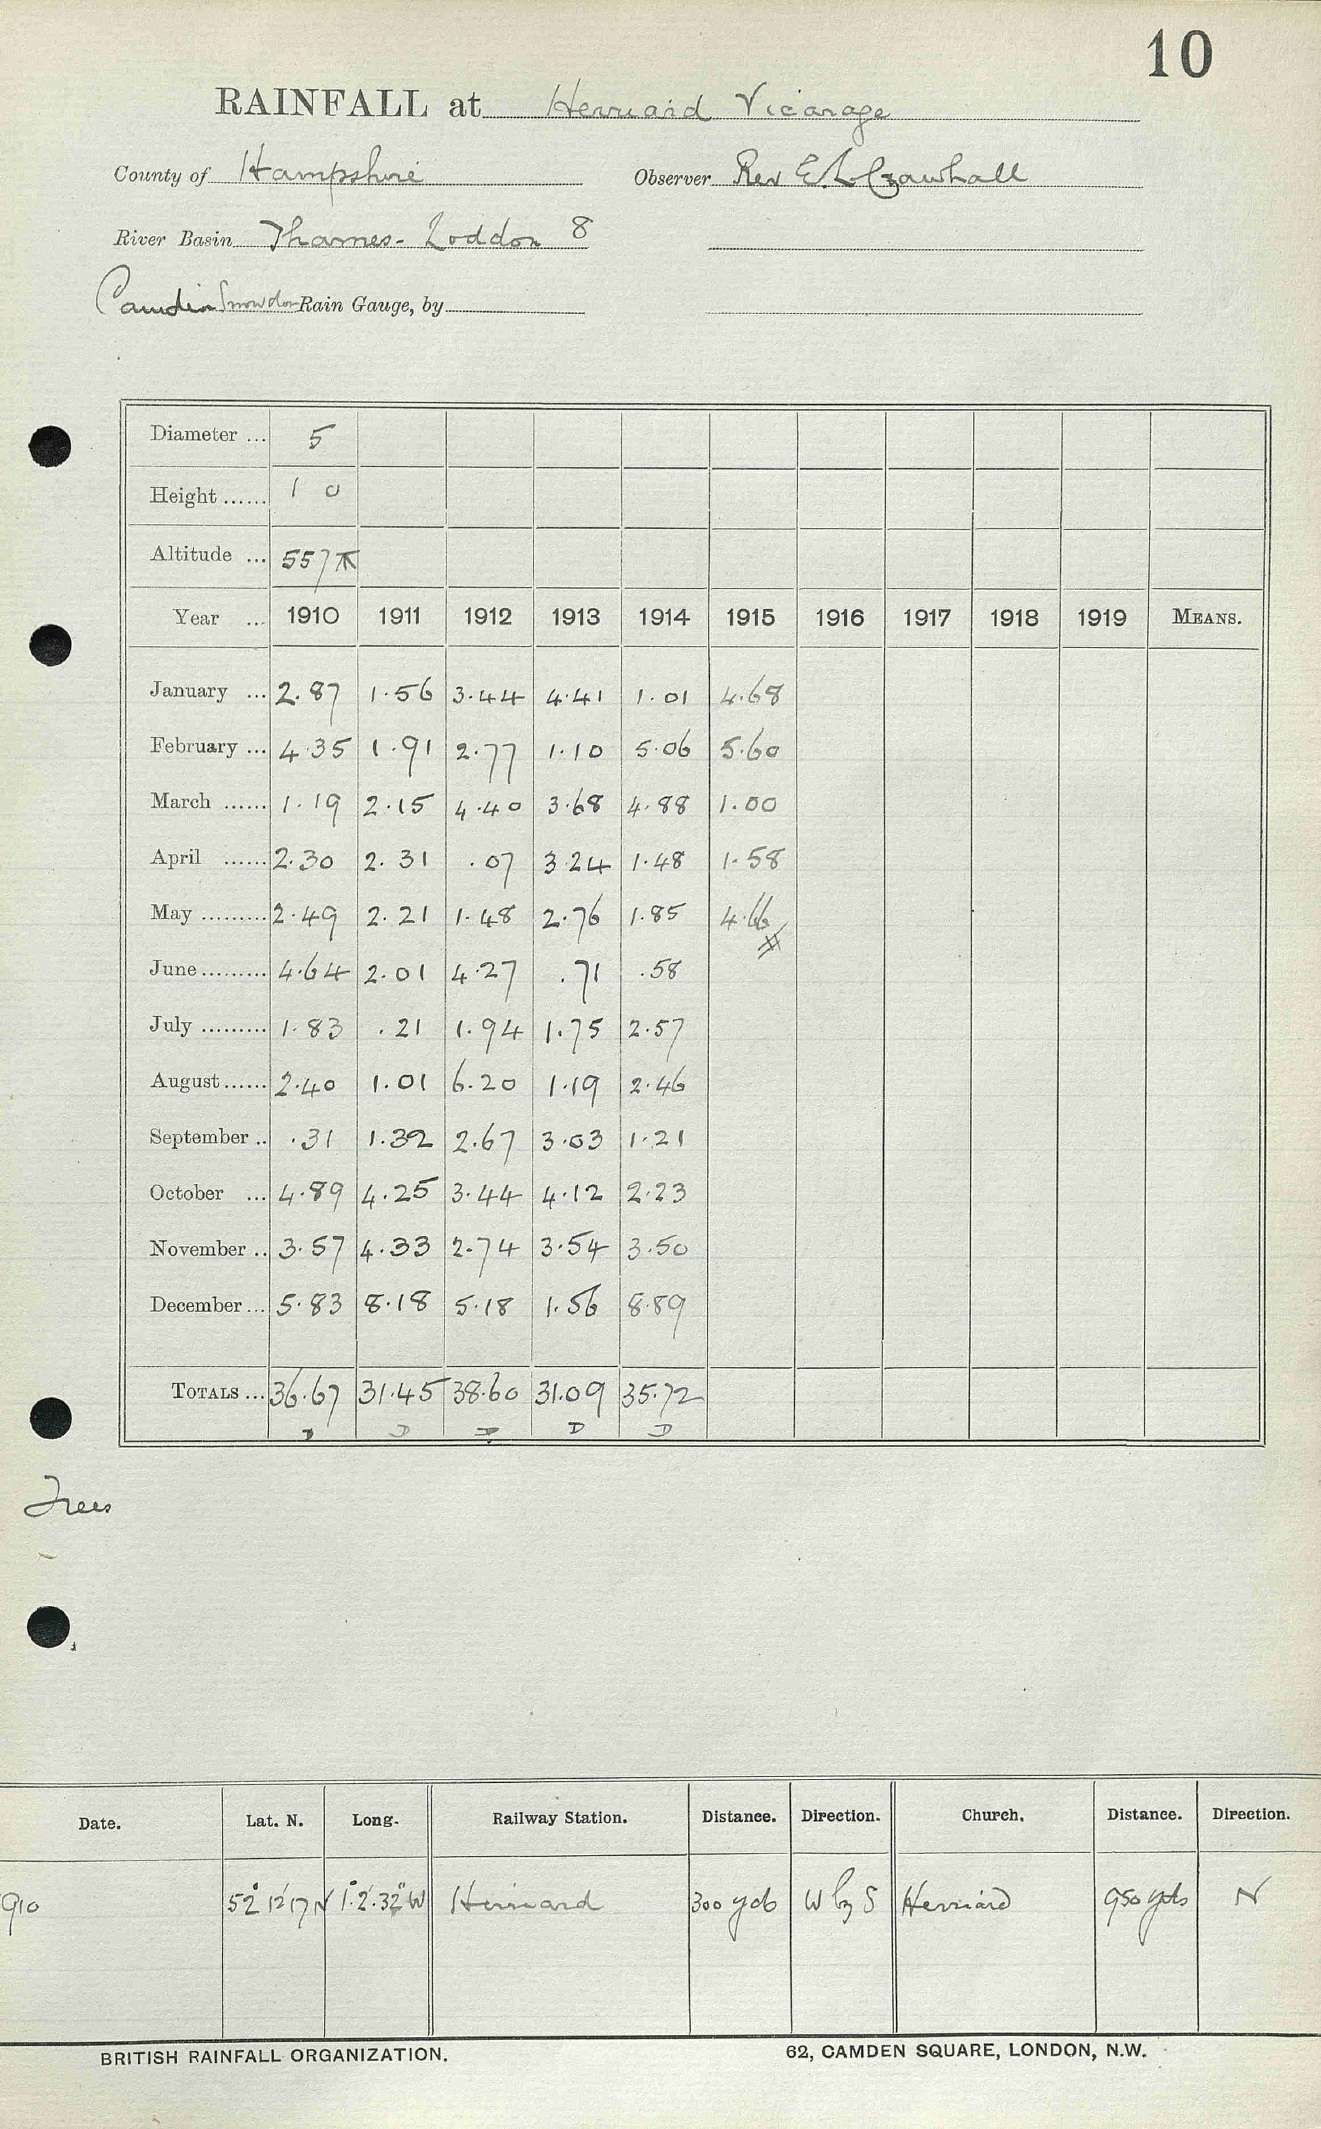 10
RAINFALL at Herriard Vicarage
County of Hampshire Observer Rev E. L. Crawhall
River Basin Thames - Loddon 8
Camden Snowdon Rain Gauge, by
Diameter ... 5
Height ...... 1 0
Altitude ... 557
Year ... 1910 1911 1912 1913 1914 1915 1916 1917 1918 1919 MEANS.
January ... 2.87 1.56 3.44 4.41 1.01 4.68
February ... 4.35 1.91 2.77 1.10 5.06 5.60
March ...... 1.19 2.15 4.40 3.68 4.88 1.00
April ...... 2.30 2.31 .07 3.24 1.48 1.58
May ......... 2.49 2.21 1.48 2.76 1.85 4.66
June ......... 4.64 2.01 4.27 .71 .58
July ......... 1.83 .21 1.94 1.75 2.57
August ...... 2.40 1.01 6.20 1.19 2.46
September .. .31 1.32 2.67 3.03 1.21
October ... 4.89 4.25 3.44 4.12 2.23
November .. 3.57 4.33 2.74 3.54 3.50
December ... 5.83 8.18 5.18 1.56 8.89
TOTALS ... 36.67 31.45 38.60 31.09 35.72
D D D D D
Trees
Date. Lat. N. Long. Railway Station. Distance. Direction. Church. Distance. Direction.
910 52° 12' 17 N 1° 2' 32" W Herriard 300 yds W by S Herriard 950 yds N
BRITISH RAINFALL ORGANIZATION. 62, CAMDEN SQUARE, LONDON, N.W.